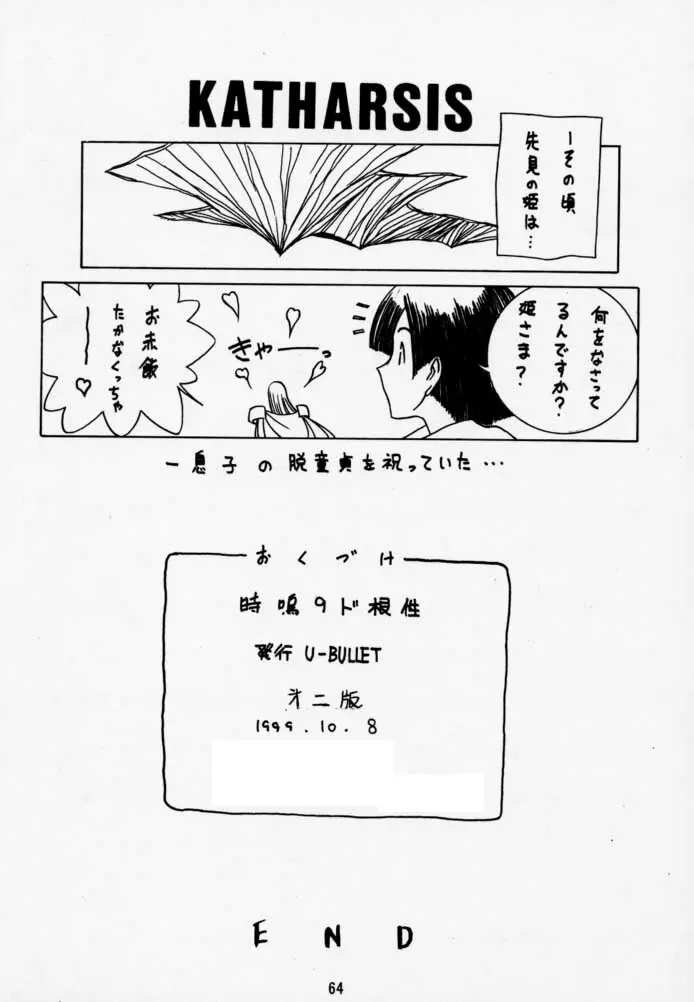 KATHARSIS
ーその頃
先見の姫は…
何をなさって
るんですか？
姫さま？
きゃーーっ
お赤飯
たかなくっちゃ
ー♡
ー息子の脱童貞を祝っていた…
おくづけ
時鳴9ド根性
発行 U-BULLET
才二版
1999.10.8
END
64